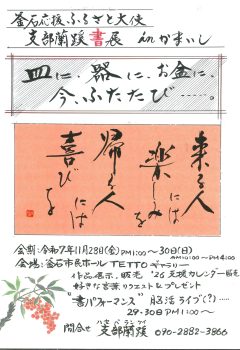 釜石応援ふるさと大使
支部蘭蹊書展 inかまいし
皿に、器に、お金に、
今、ふたたび……。
来る人
には
楽しみを
帰る人
には
喜びを
会期:令和7年11月28日(金)PM1:00～30日(日)
AM10:00～PM4:00
会場:釜石市民ホールTETTOギャラリー
作品展示、販売 '26支援カレンダー販売
好きな言葉リクエスト&プレゼント
"書パフォーマンス" 脳活ライブ(?)……
29・30日 PM1:00～
問合せ 支部蘭蹊 090-2882-3866